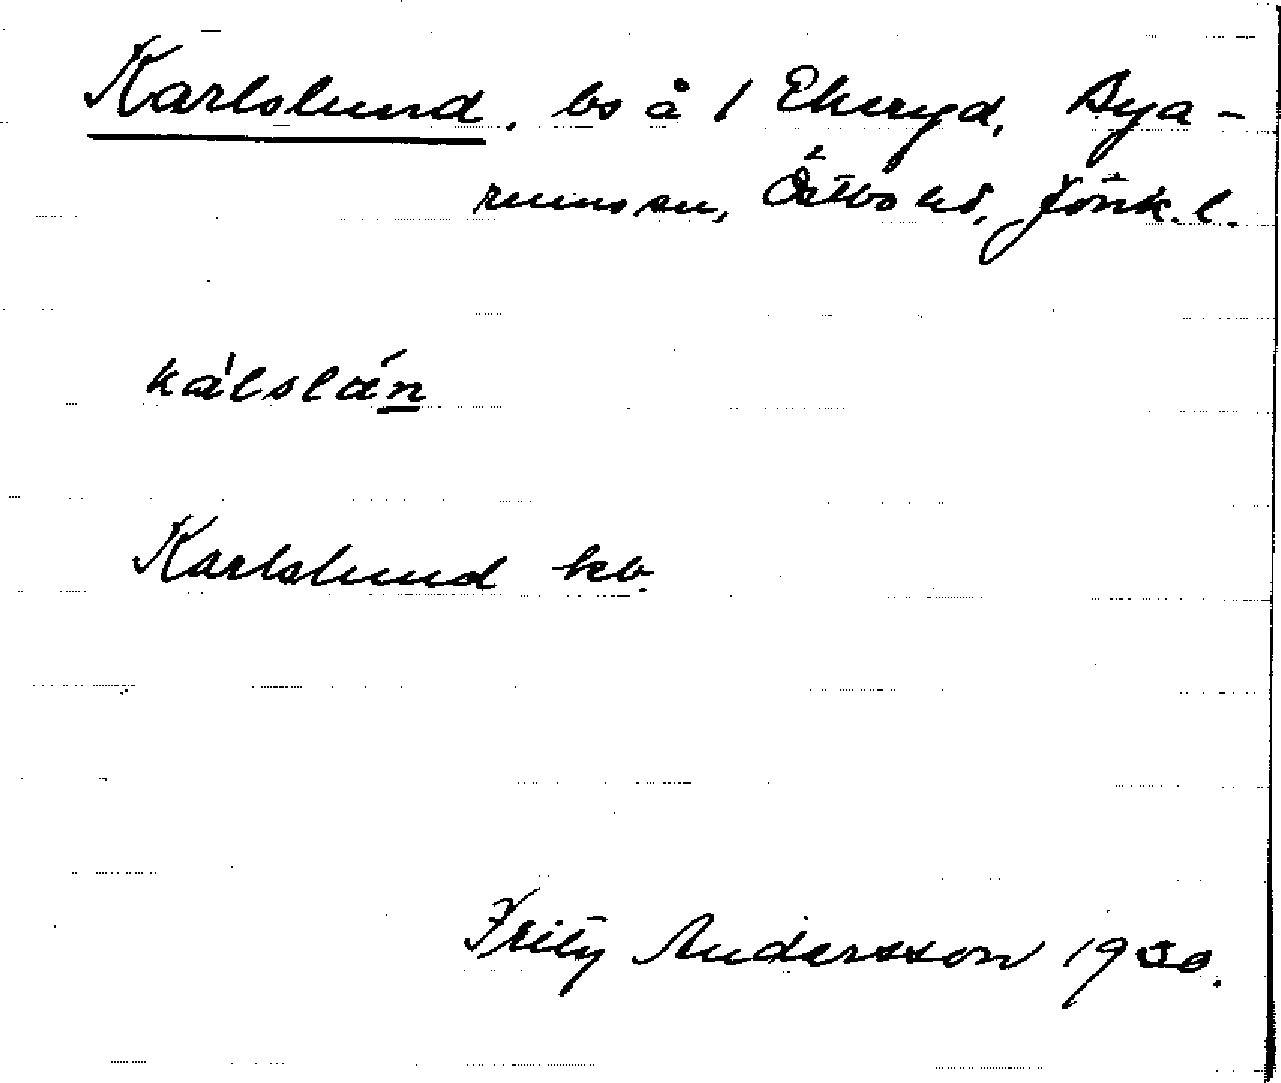 Karlslund, bs å 1 Ekeryd, Bya-
rums sn, Östbo hd, Jönk. l.
ka'lslán
Karlslund kb.
Fritz Andersson 1930.